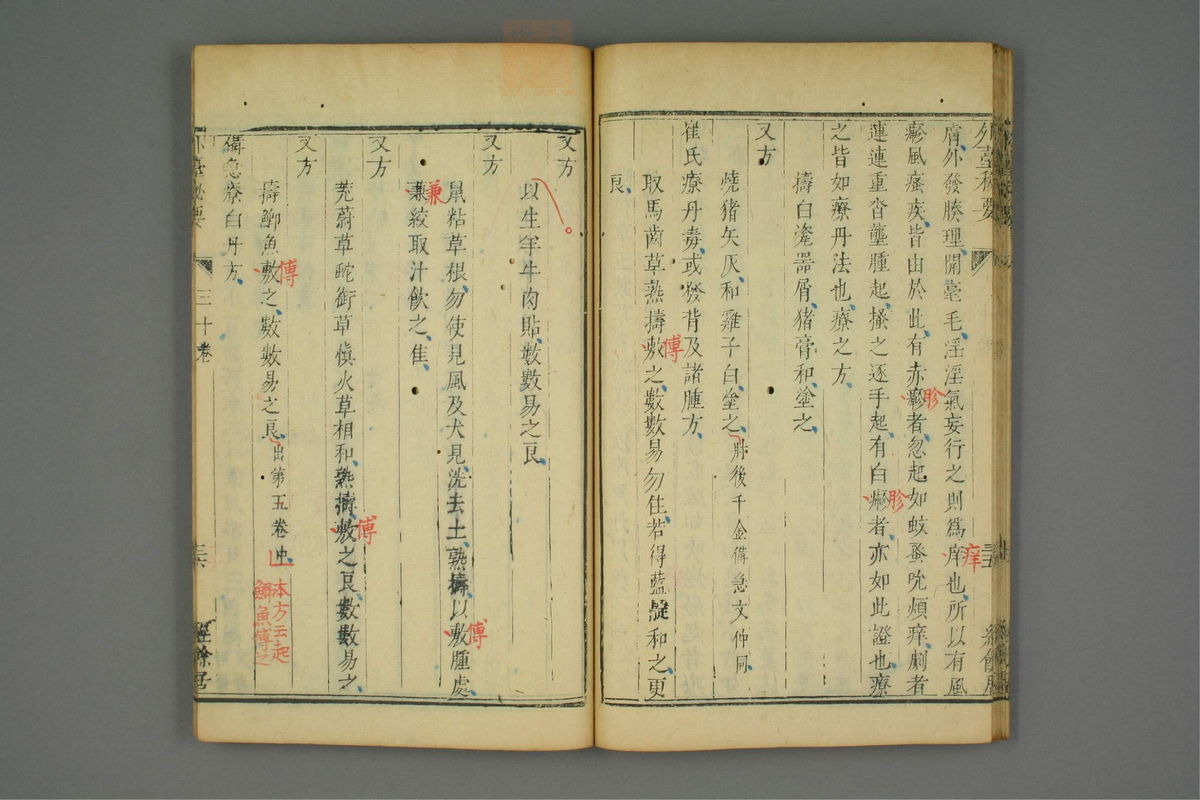 外臺秘要
膚外發腠理開毫毛淫淫氣妄行之則為痒也所以有風
痒
瘮風瘙疾皆由於此有赤瘮者忽起如蚊蚤吮煩痒劇者
胗
連連重沓壟腫起搔之逐手起有白瘮者亦如此證也療
胗
之皆如療丹法也療之方
擣白瓷器屑豬膏和塗之
又方
燒猪矢灰和雞子白塗之肘後千金備急文仲同
崔氏療丹毒或發背及諸腫方
取馬齒草熟擣敷之數數易勿住若得藍靛和之更
傅
良
又方
以生羊牛肉貼數數易之良
又方
鼠粘草根勿使見風及犬見洗去土熟擣以敷腫處
傅
兼絞取汁飲之佳
兼
又方
茺蔚草蛇銜草慎火草相和熟擣敷之良數數易之
傅
又方
擣鯽魚敷之數數易之良出第五卷中
傅
本方云起
鯽魚傅之
備急療白丹方
外臺秘要
三十卷
三六
經餘居